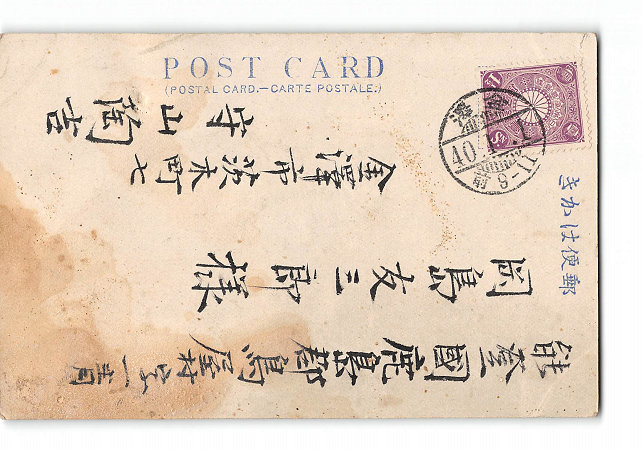 POST CARD
(POSTAL CARD.—CARTE POSTALE.)
郵便はかき
能登國鹿島郡鳥屋村字一青
岡島友三郎様
金澤市茨木町七
守山吉
40